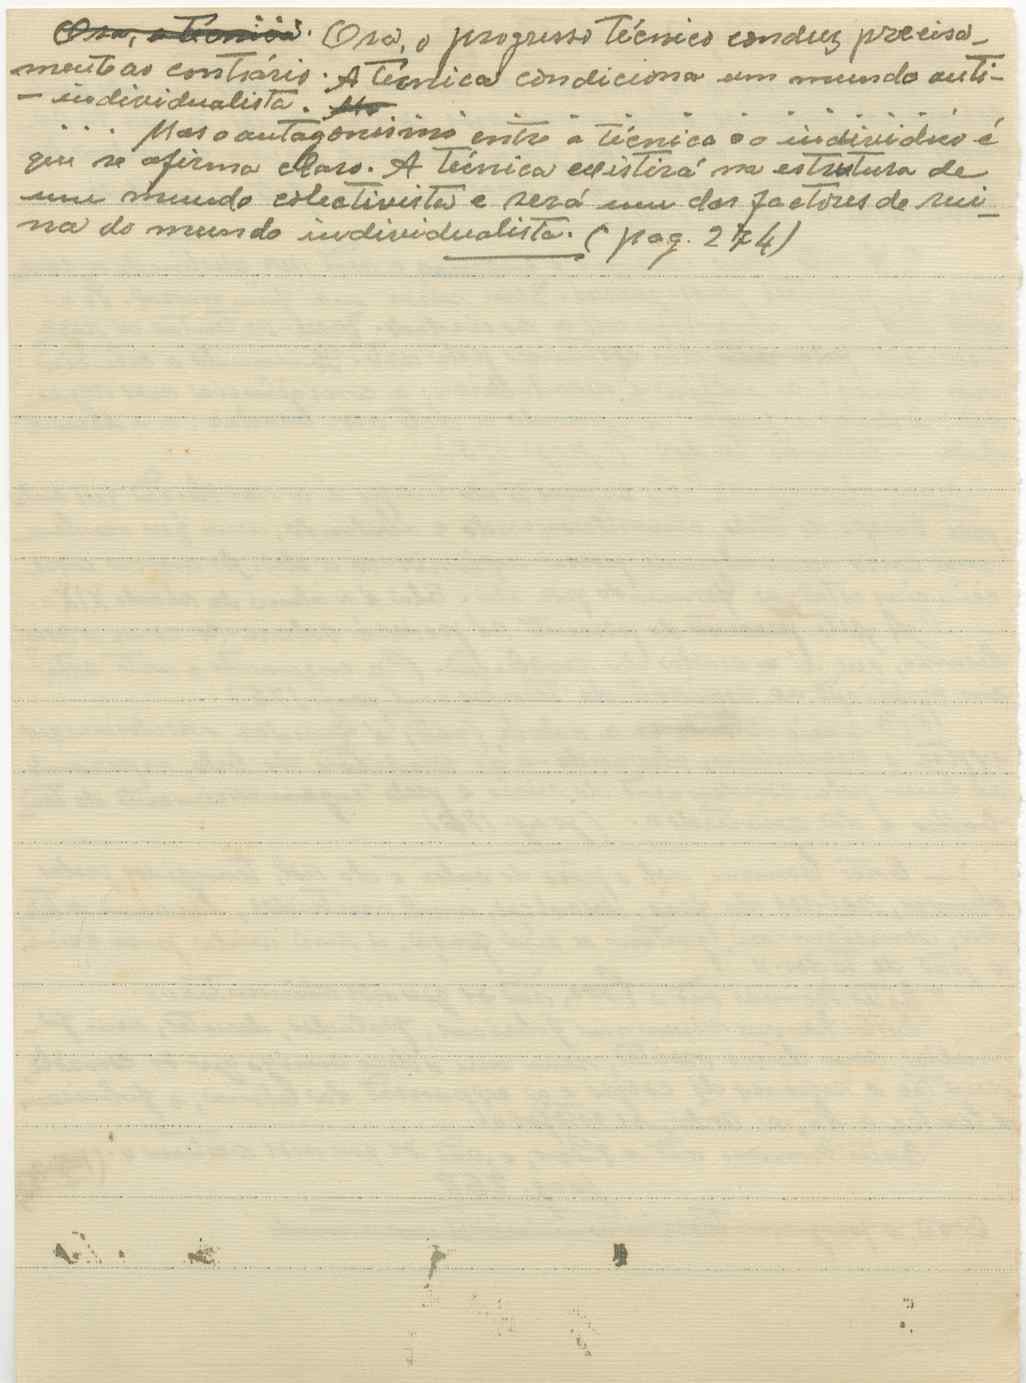 Ora, a técnica. Ora, o progresso técnico conduz precisa-
mente ao contrário. A técnica condiciona um mundo anti-
-individualista. Mo
... Mas o antagonismo entre a técnica e o indivíduo é
que se afirma claro. A técnica existirá na estrutura de
um mundo colectivista e será um dos factores de rui-
na do mundo individualista. (pag. 274)